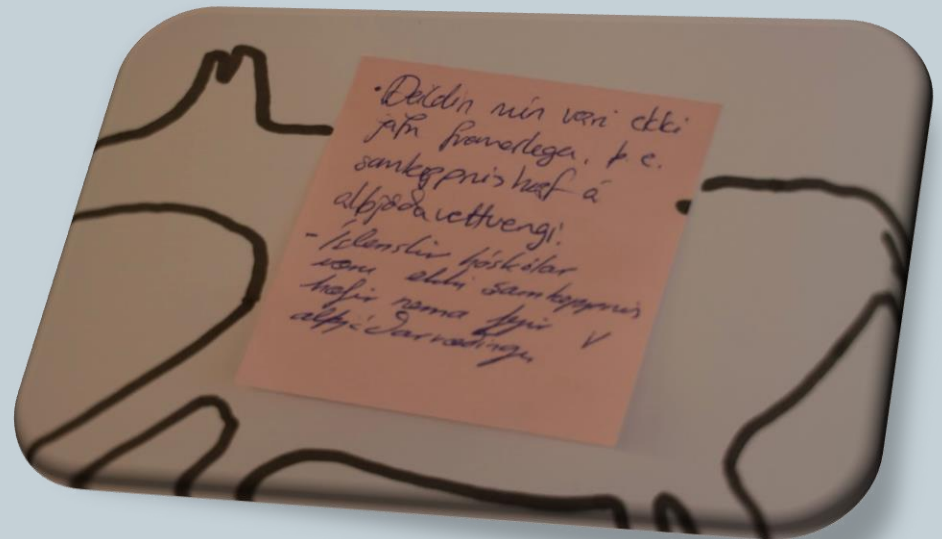 • Deildin mín væri ekki
jafn framarlega, þ.e.
samkeppnishæf á
alþjóðavettvangi.
- Íslenskir háskólar
væru ekki samkeppnis
hæfir nema fyrir
alþjóðavæðingu